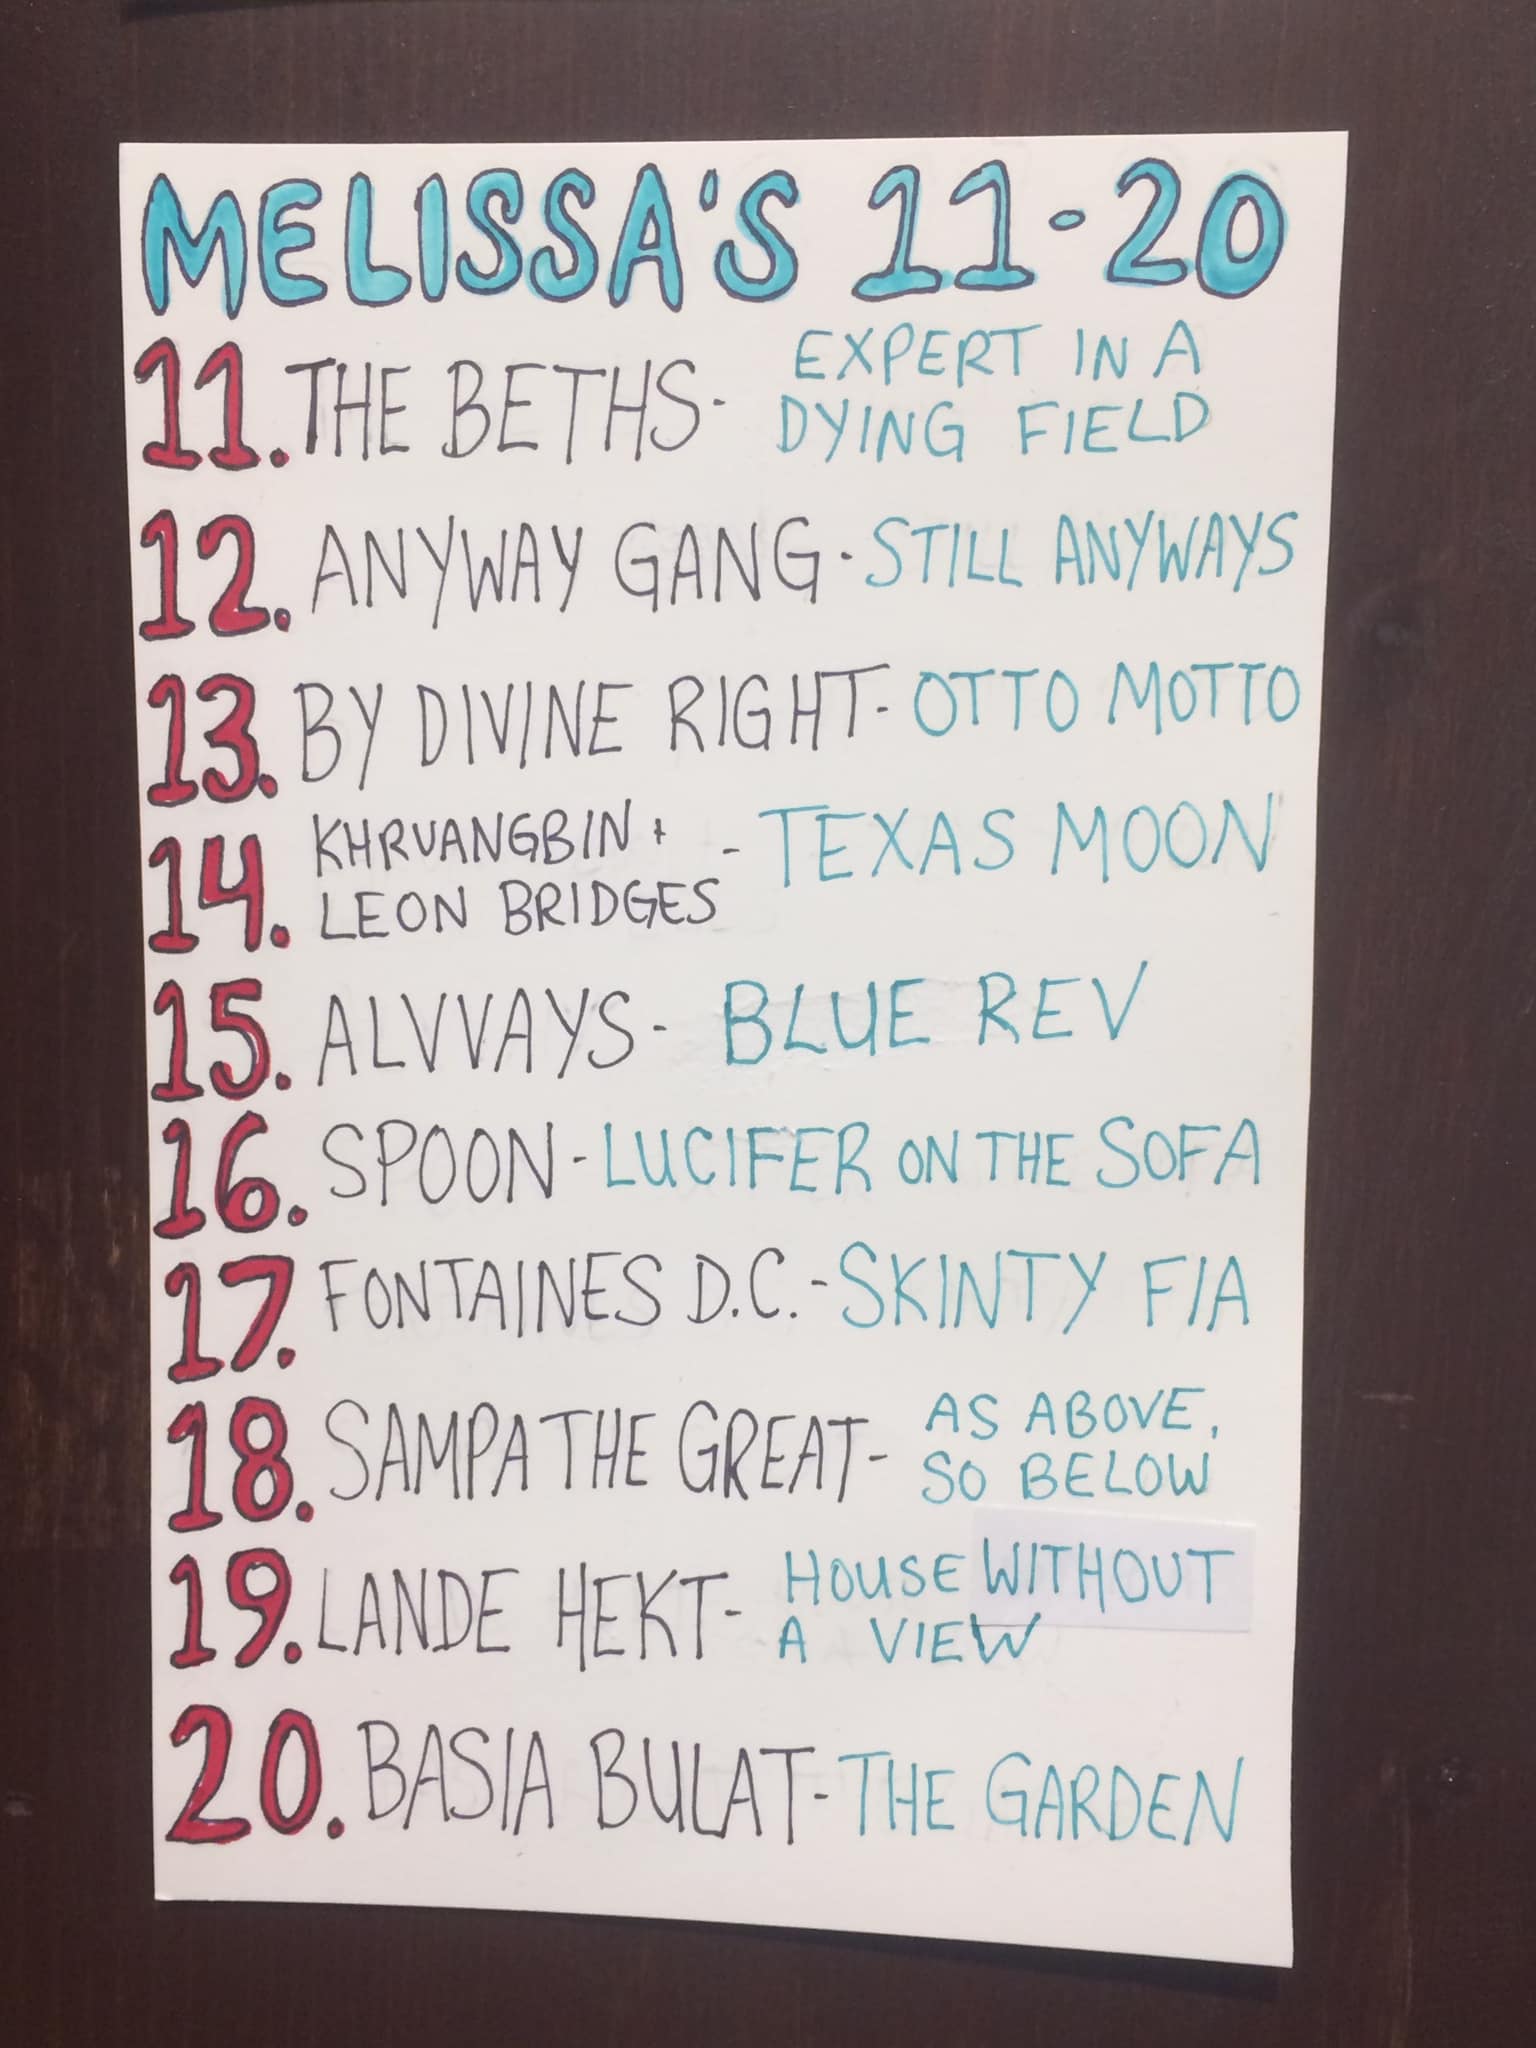 MELISSA'S 11-20
11. THE BETHS- EXPERT IN A
DYING FIELD
12. ANYWAY GANG- STILL ANYWAYS
13. BY DIVINE RIGHT- OTTO MOTTO
14. KHRUANGBIN +
LEON BRIDGES - TEXAS MOON
15. ALVVAYS- BLUE REV
16. SPOON- LUCIFER ON THE SOFA
17. FONTAINES D.C.- SKINTY FIA
18. SAMPA THE GREAT- AS ABOVE,
SO BELOW
19. LANDE HEKT- HOUSE WITHOUT
A VIEW
20. BASIA BULAT- THE GARDEN